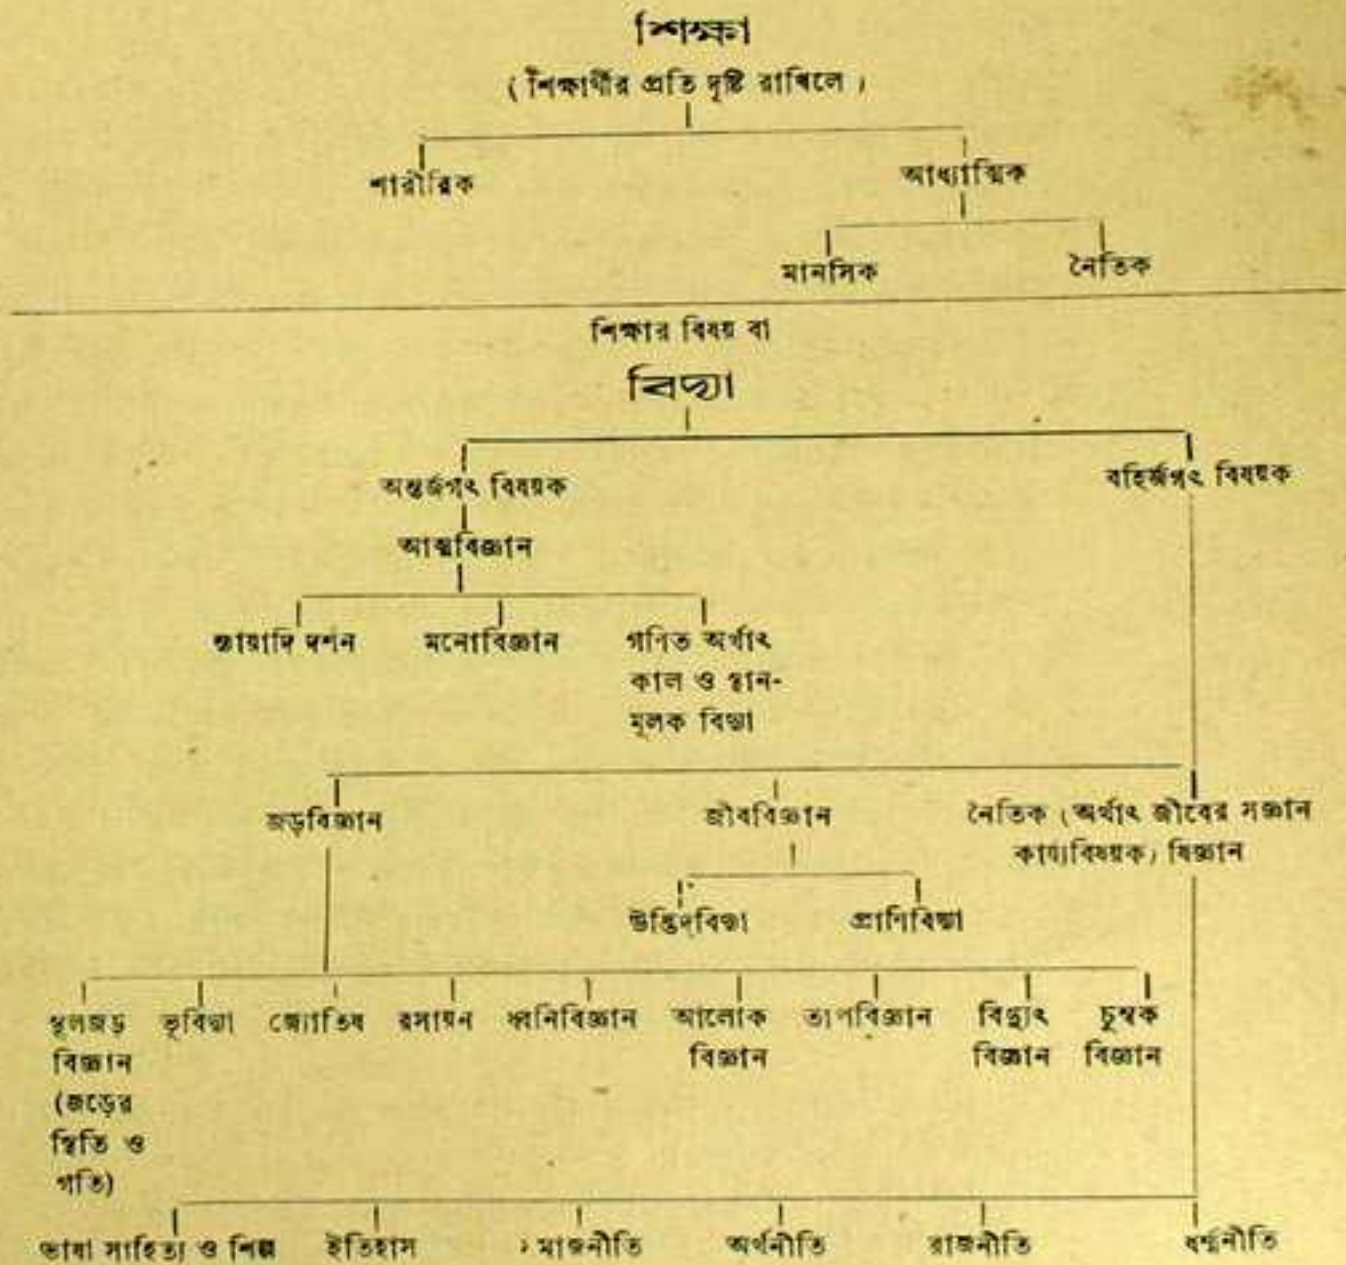 শিক্ষা
( শিক্ষার্থীর প্রতি দৃষ্টি রাখিলে )
শারীরিক আধ্যাত্মিক
মানসিক নৈতিক
শিক্ষার বিষয় বা
বিদ্যা
অন্তর্জগৎ বিষয়ক বহির্জগৎ বিষয়ক
আত্মবিজ্ঞান
ন্যায়াদি দর্শন মনোবিজ্ঞান গণিত অর্থাৎ
কাল ও স্থান-
মূলক বিদ্যা
জড়বিজ্ঞান জীববিজ্ঞান নৈতিক (অর্থাৎ জীবের সজ্ঞান
কার্য্যবিষয়ক) বিজ্ঞান
উদ্ভিদ্‌বিদ্যা প্রাণিবিদ্যা
স্থূলজড় ভূবিদ্যা জ্যোতিষ রসায়ন ধ্বনিবিজ্ঞান আলোক তাপবিজ্ঞান বিদ্যুৎ চুম্বক
বিজ্ঞান বিজ্ঞান বিজ্ঞান বিজ্ঞান
(জড়ের
স্থিতি ও
গতি)
ভাষা সাহিত্য ও শিল্প ইতিহাস মাজনীতি অর্থনীতি রাজনীতি ধর্ম্মনীতি